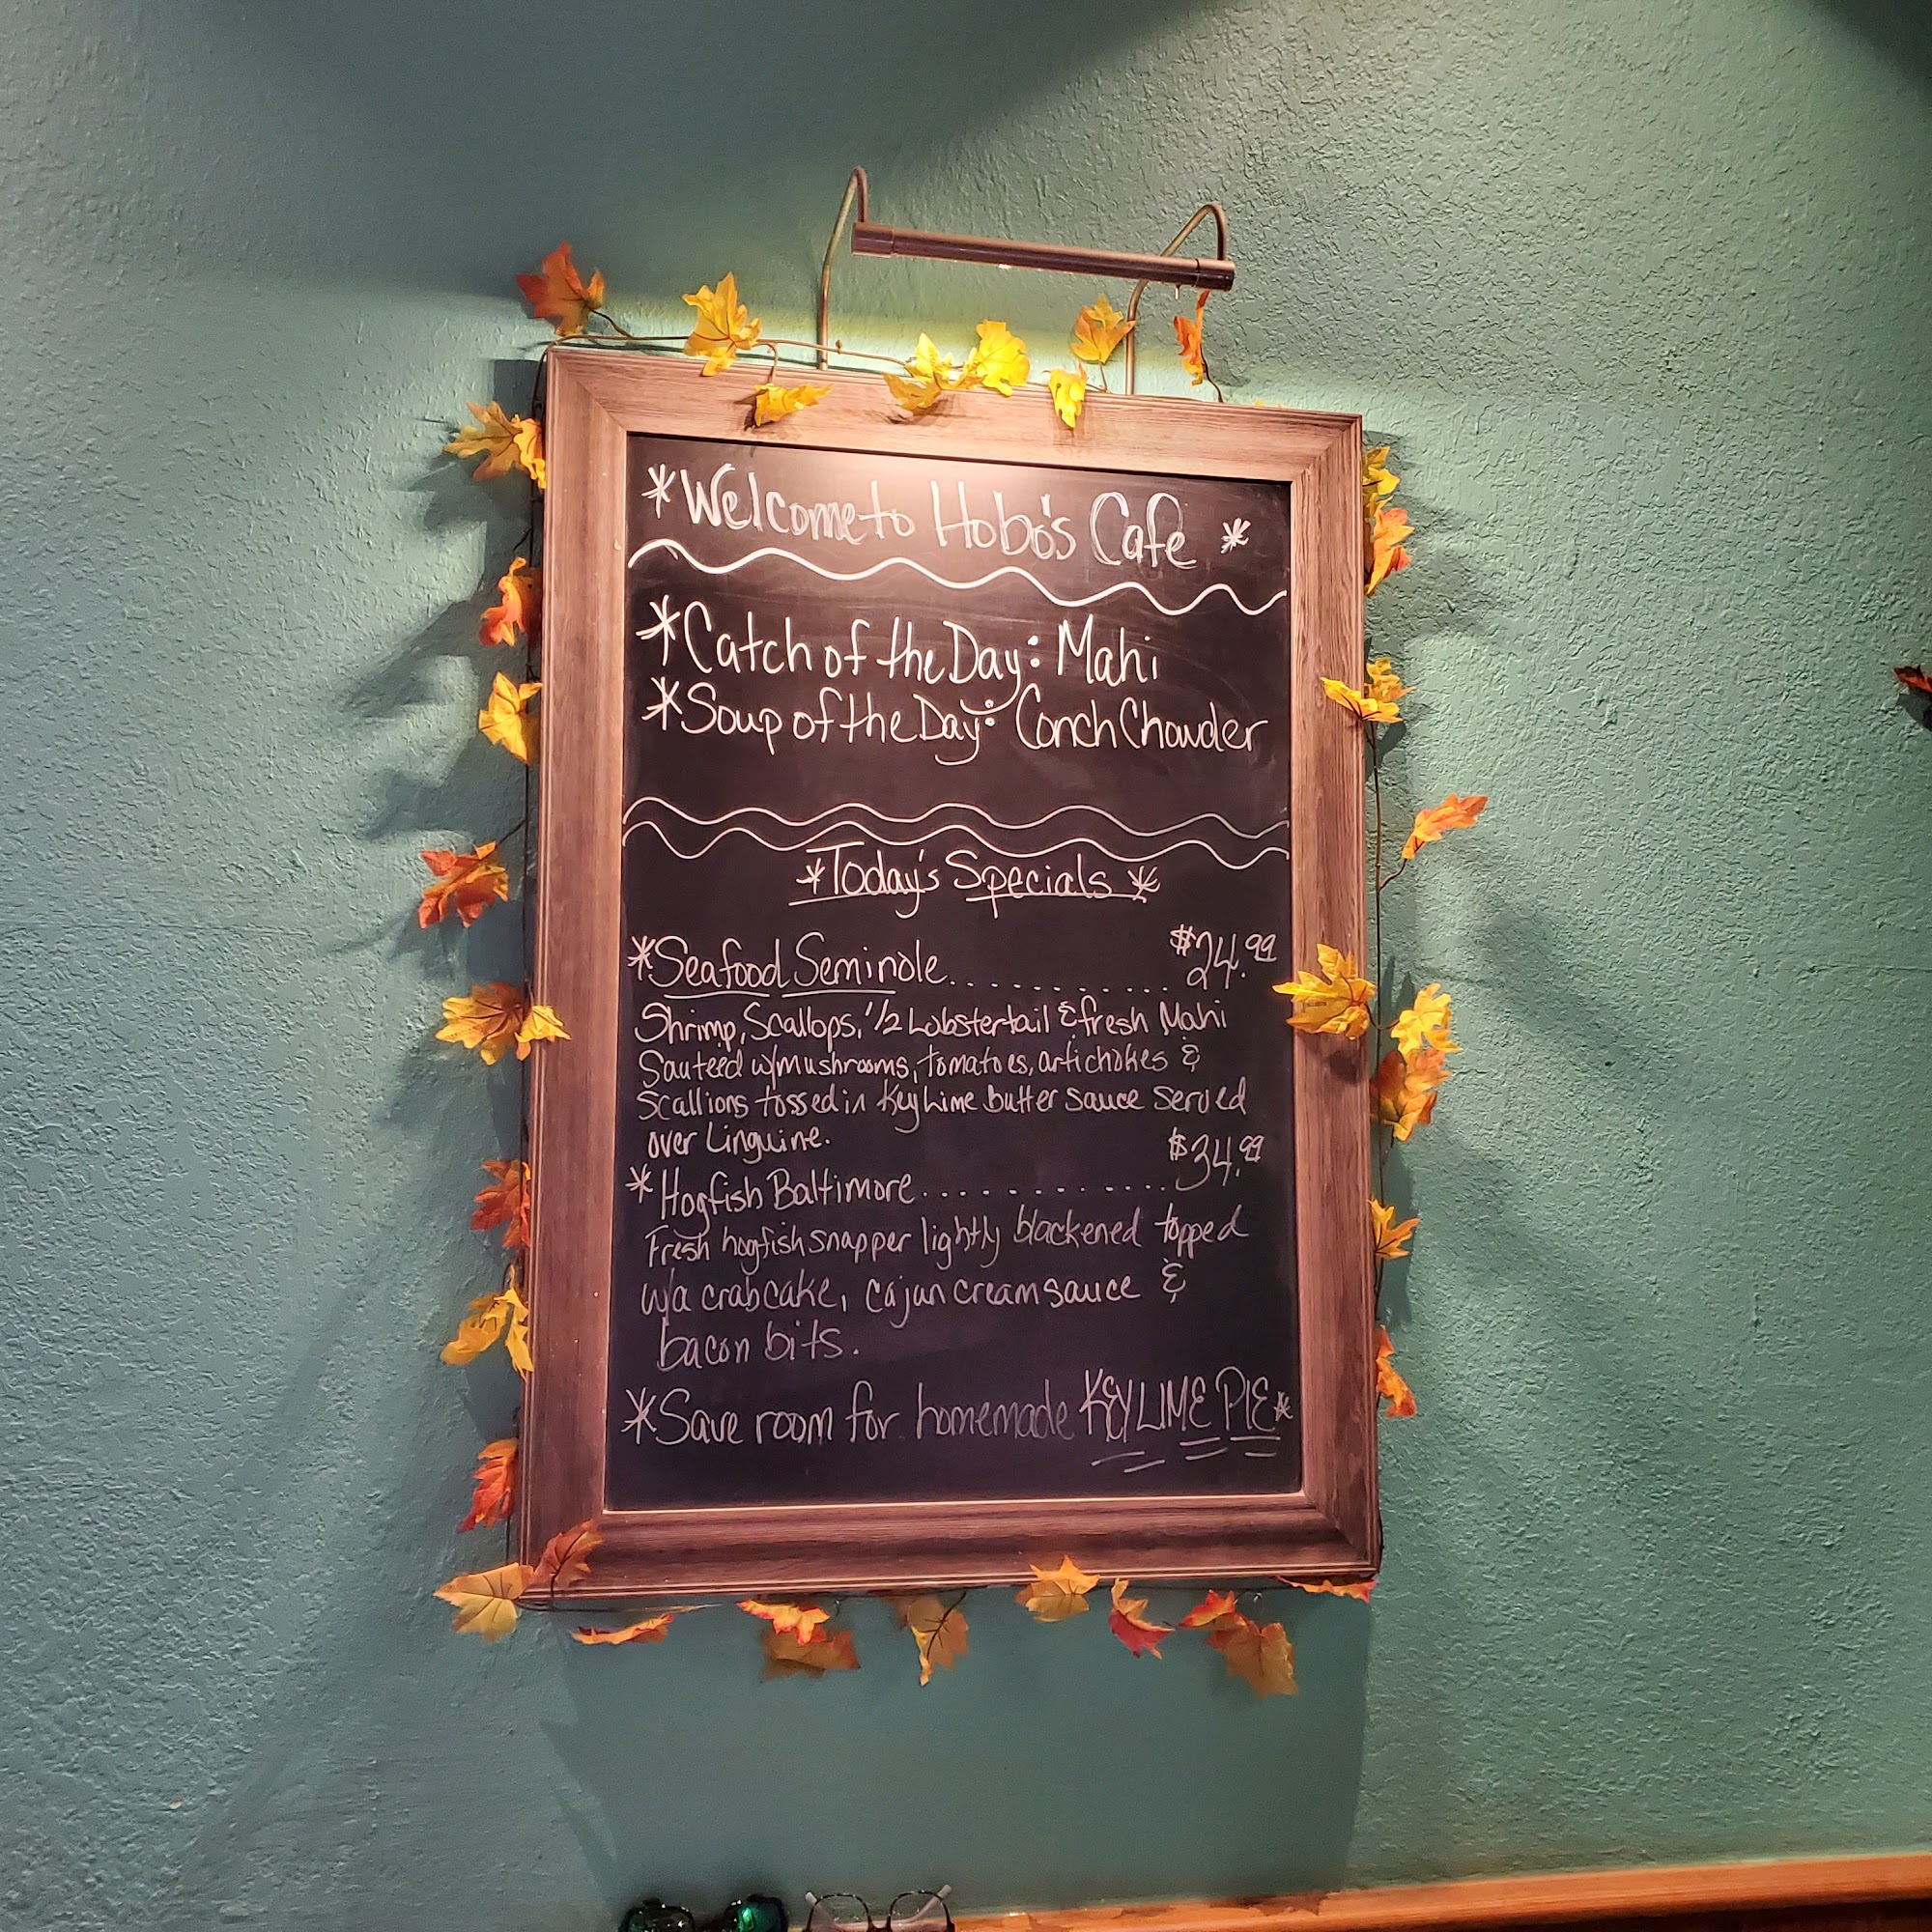 *Welcome to Hobo's Cafe*
*Catch of the Day: Mahi
*Soup of the Day: Conch Chowder
*Today's Specials*
*Seafood Seminole........... $24.99
Shrimp, Scallops, 1/2 Lobstertail & fresh Mahi
Sauteed w/mushrooms, tomatoes, artichokes &
Scallions tossed in Key Lime butter sauce served
over Linguine.
*Hogfish Baltimore............. $34.99
Fresh hogfish snapper lightly blackened topped
w/a crabcake, cajun cream sauce &
bacon bits.
*Save room for homemade KEY LIME PIE*